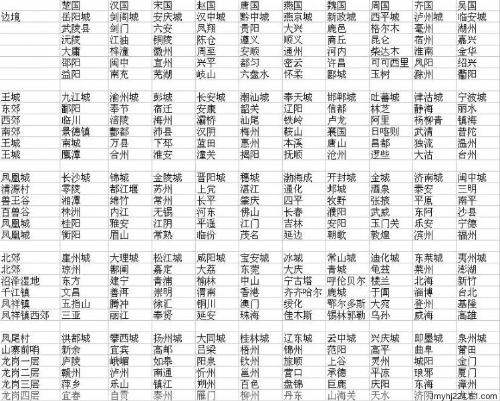 楚国 汉国 宋国 秦国 唐国 燕国 魏国 周国 齐国 吴国
边境 岳阳城 剑阁城 安庆城 汉中城 黔中城 燕京城 新政城 西平城 泸州城 临安城
武陵县 剑门 六安 凤翔 贵阳 大兴 鹿邑 格尔木 亳州 湖州
沅江 江油 铜陵 陈仓 遵义 顺义 商丘 昆仑 宿州 嘉兴
大庸 梓潼 徽州 周至 安顺 通州 河内 柴达木 淮南 金华
邵阳 阆中 宣州 兴平 都匀 密云 许昌 可可西里 凤阳 绍兴
益阳 南充 芜湖 岐山 六盘水 怀柔 郾城 玉树 滁州 衢州
王城 九江城 渝州城 彭城 长安城 潮汕城 奉天城 邯郸城 吐蕃城 津沽城 宁波城
东郊 鄱阳 奉节 宿迁 安康 韶关 辽阳 信都 林芝 静海 丽水
西郊 临川 涪陵 海州 灞桥 汕尾 铁岭 卢龙 阿里 杨柳青 镇海
南郊 景德镇 酆都 沛县 汉阴 梅州 鞍山 襄国 日喀则 武清 普陀
王城 南城 万县 下邳 蓝田 惠州 本溪 唐山 昌都 独流 温州
王城 鹰潭 合州 淮安 潼关 揭阳 抚顺 沧州 逻些 大沽 台州
凤凰城 长沙城 锦城 金陵城 晋阳城 穗城 渤海城 开封城 金城 济南城 闽中城
清源村 零陵 都江堰 苏州 上党 湛江 通化 邺城 酒泉 泰安 三明
兽王谷 湘潭 绵竹 常州 长平 肇庆 四平 牧野 张掖 平原 南平
百兽谷 株洲 内江 无锡 河东 佛山 长春 濮阳 武威 东阿 沙县
凤凰城 桂阳 雅安 江阴 平遥 江门 吉林 安阳 玉门关 乐安 宁德
凤凰城 衡阳 眉山 常熟 临汾 茂名 延边 朝歌 敦煌 滨州 福州
北郊 崖州城 大理城 松江城 咸阳城 宝安城 冰城 常山城 迪化城 东莱城 夷州城
北郊 琼州 鄯阐 嘉定 大荔 东莞 大庆 青城 龟兹 莱州 澎湖
沼泽湿地 东方 建宁 青浦 榆林 中山 宁古塔 呼伦贝尔 楼兰 北海 新竹
千江镇 文昌 善阐 崇明 渭南 香港 齐齐哈尔 虎城 于阗 淄博 台北
凤祥镇 五指山 腾冲 徐汇 铜川 澳门 绥化 鄂尔多斯 大宛 登州 基隆
凤祥镇西郊 三亚 丽江 奉贤 延安 珠海 佳木斯 锡林郭勒 乌孙 威海 高雄
凤尾村 洪都城 攀西城 扬州城 大同城 桂林城 辽东城 云中城 兴庆城 即墨城 泉州城
山寨前哨 新余 宜宾 高邮 吕梁 梧州 锦州 范阳 高平 曲阜 莆田
龙岗一层 庐陵 峨嵋 如皋 阳泉 钦州 旅顺 上谷 灵州 城阳 金门
龙岗二层 赣州 泸州 南通 忻州 邕州 营口 承德 平凉 琅琊 厦门
龙岗三层 萍乡 乐山 镇江 朔州 百色 盘锦 巨鹿 庆阳 东海 漳州
龙岗四层 宜春 自贡 泰州 雁门 柳州 丹东 山海关 天水 济阴
myhj224.cf.